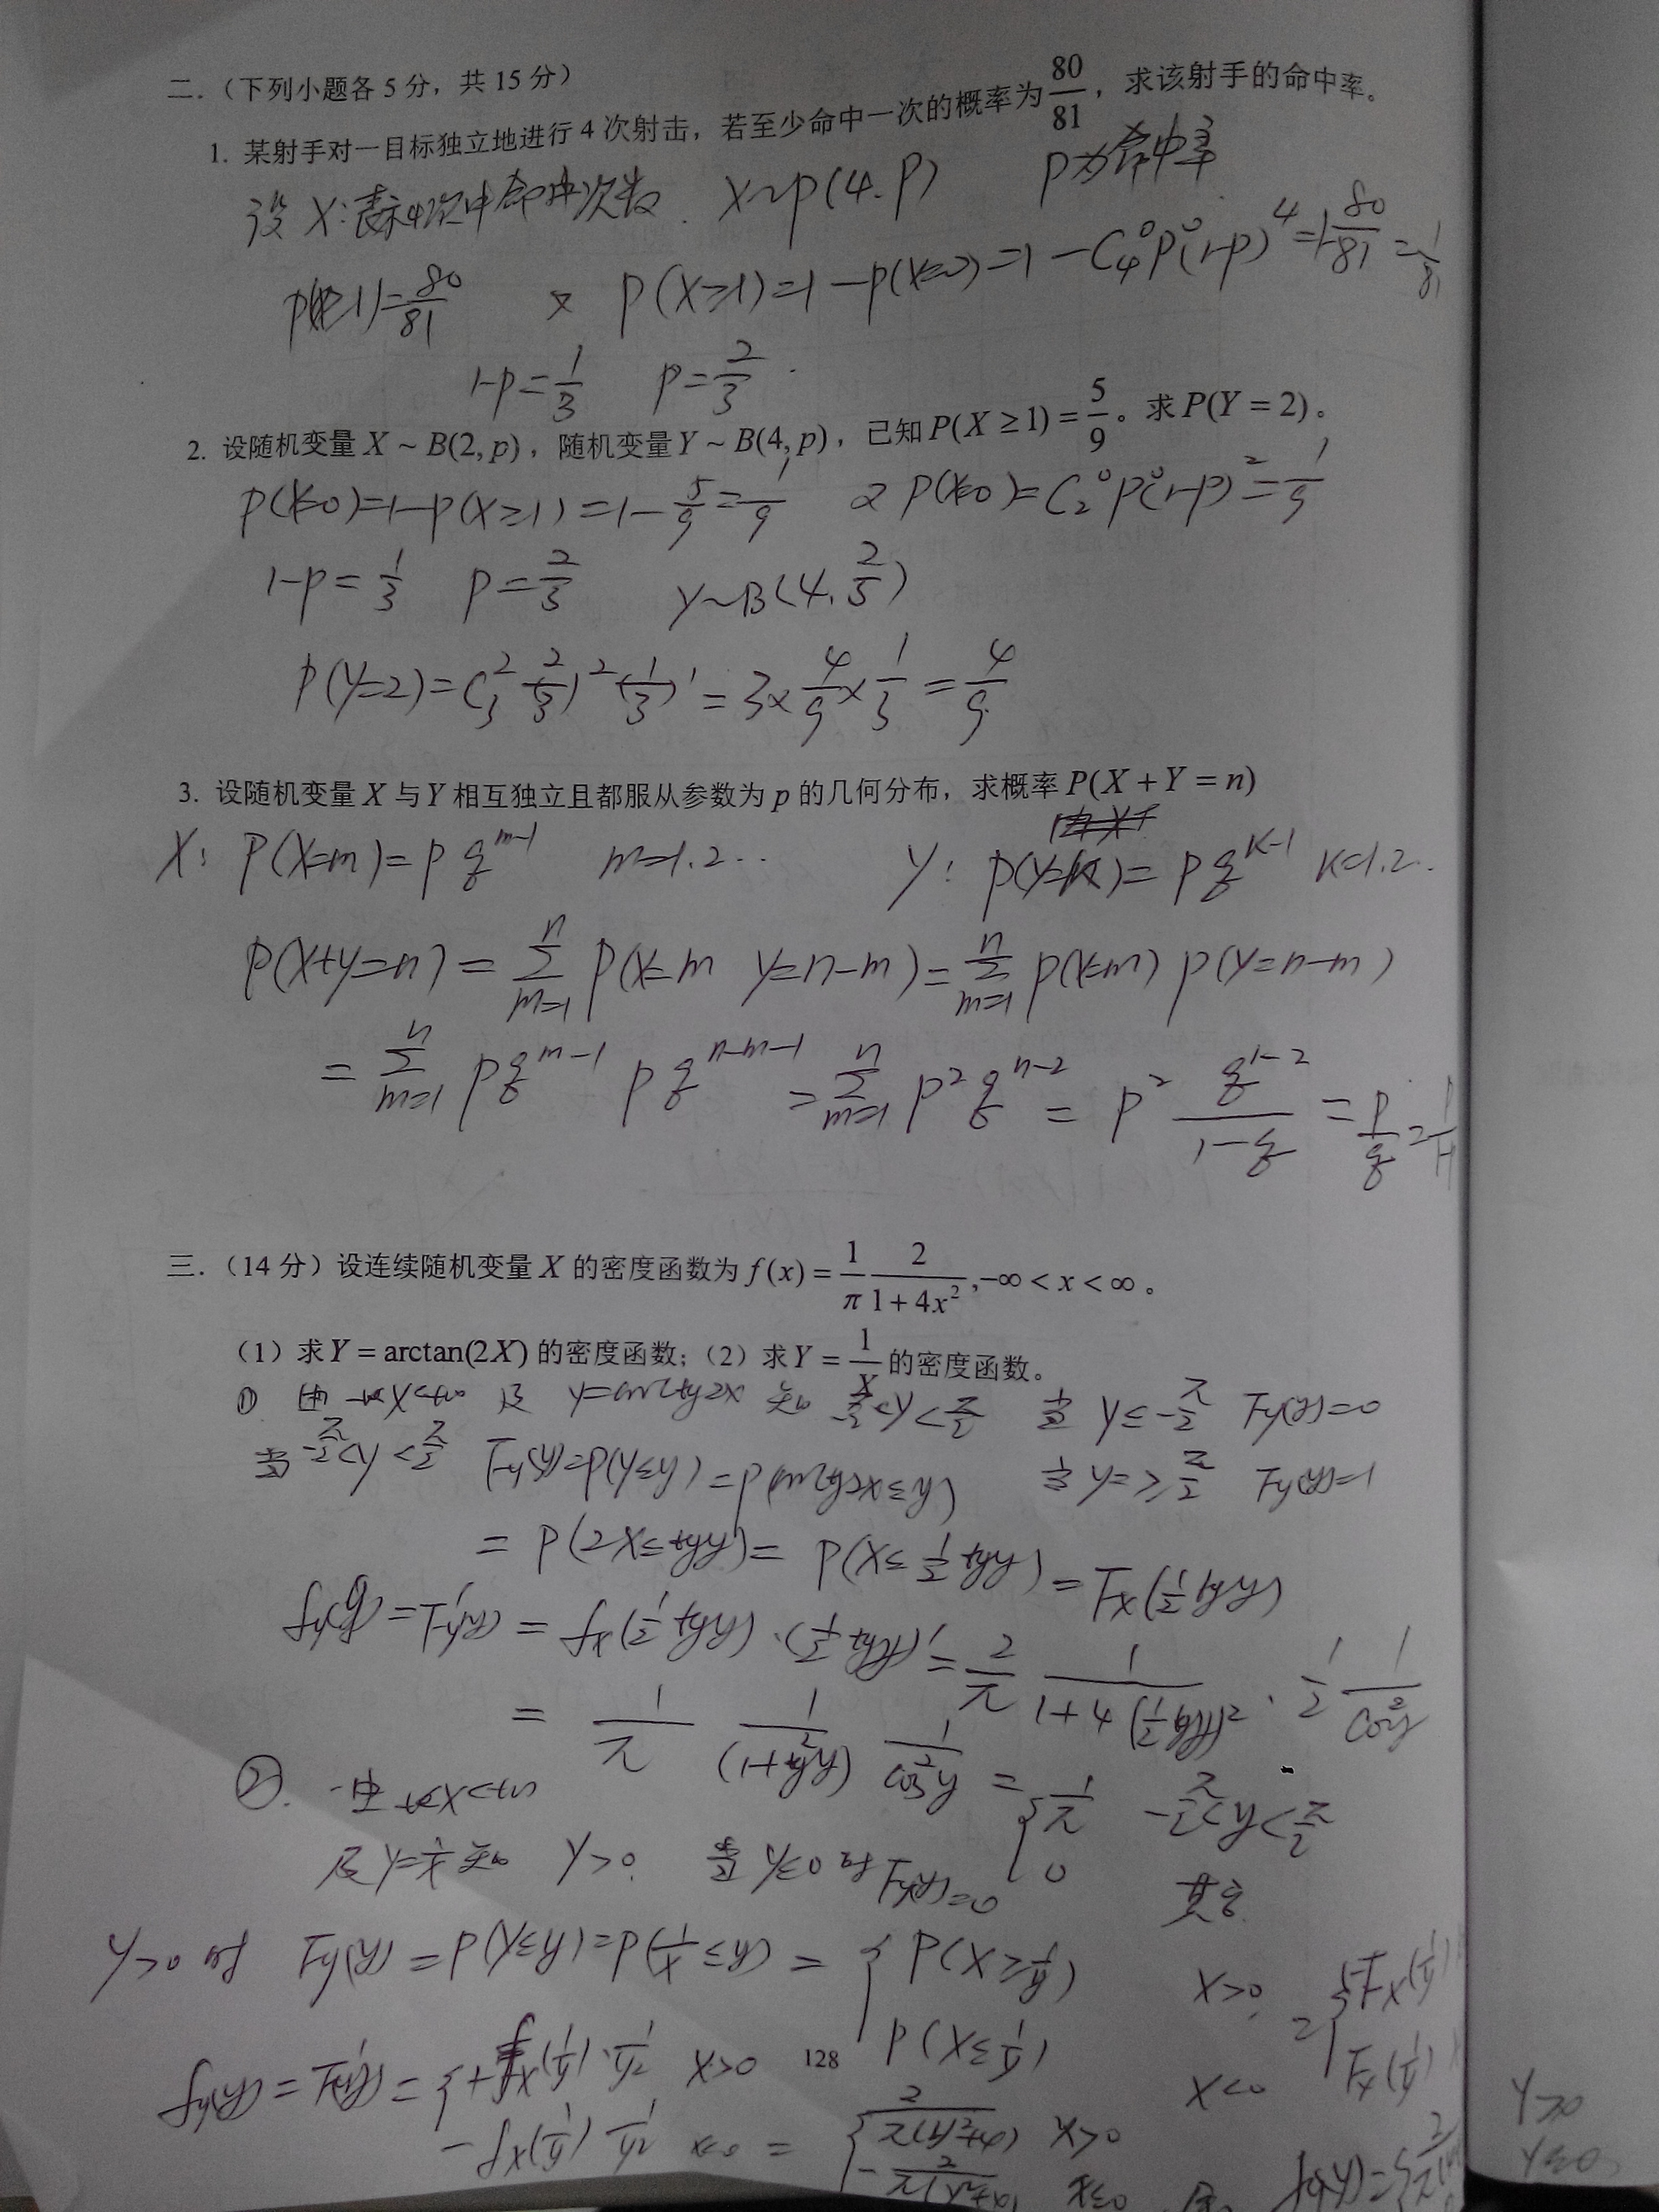 二.（下列小题各 5 分，共 15 分）
1. 某射手对一目标独立地进行 4 次射击，若至少命中一次的概率为 80/81，求该射手的命中率。
设 X:表示4次中命中次数. X~p(4.P) P为命中率
P(X≥1)=80/81 又 P(X≥1)=1-P(X=0)=1-C₄⁰P⁰(1-P)⁴=1-80/81=1/81
1-P=1/3 P=2/3.
2. 设随机变量 X ~ B(2, p)，随机变量 Y ~ B(4, p)，已知 P(X ≥ 1) = 5/9。求 P(Y = 2)。
P(X=0)=1-P(X≥1)=1-5/9=1/9 又 P(X=0)=C₂⁰P⁰(1-P)²=1/9
1-P=1/3 P=2/3 Y~B(4.2/3)
P(Y=2)=C₃²(2/3)²(1/3)¹=3×4/9×1/3=4/9
3. 设随机变量 X 与 Y 相互独立且都服从参数为 p 的几何分布，求概率 P(X + Y = n)
X: P(X=m)=pq^(m-1) m=1.2... Y: P(Y=K)=pq^(K-1) K=1.2..
P(X+Y=n)=∑_(m=1)^n P(X=m Y=n-m)=∑_(m=1)^n P(X=m) P(Y=n-m)
=∑_(m=1)^n pq^(m-1) pq^(n-m-1)=∑_(m=1)^n p²q^(n-2)=p² q^(1-2)/(1-q)=p/q=
三.（14 分）设连续随机变量 X 的密度函数为 f(x) = 1/π 2/(1+4x²), -∞ < x < ∞。
（1）求 Y = arctan(2X) 的密度函数；（2）求 Y = 1/X 的密度函数。
① 由 -∞<X<+∞ 及 y=arctg2x 知 -π/2<y<π/2 当 y≤-π/2 Fy(y)=0
当 -π/2<y<π/2 Fy(y)=P(Y≤y)=P(arctg2x≤y) 当 y=≥π/2 Fy(y)=1
=P(2X≤tgy)=P(X≤1/2tgy)=Fx(1/2tgy)
fy(y)=F'y(y)=fx(1/2tgy)·(1/2tgy)'=2/π 1/(1+4(1/2tgy)²)·1/2 1/cos²y
=1/π 1/(1+tg²y) 1/cos²y={1/π -π/2<y<π/2
0 其它
②. 由 -∞<X<+∞
及 y=1/x 知 Y>0. 当 y≤0 时 Fy(y)=0
y>0 时 Fy(y)=P(Y≤y)=P(1/X≤y)={P(X≥1/y) X>0
P(X≤1/y) X<0
fy(y)=F'(y)={+fx(1/y)·1/y² X>0
128
-fx(1/y) 1/y² x<0={2/π(y²+4) x>0
-2/π(y²+4) x≤0
y>0
y≤0